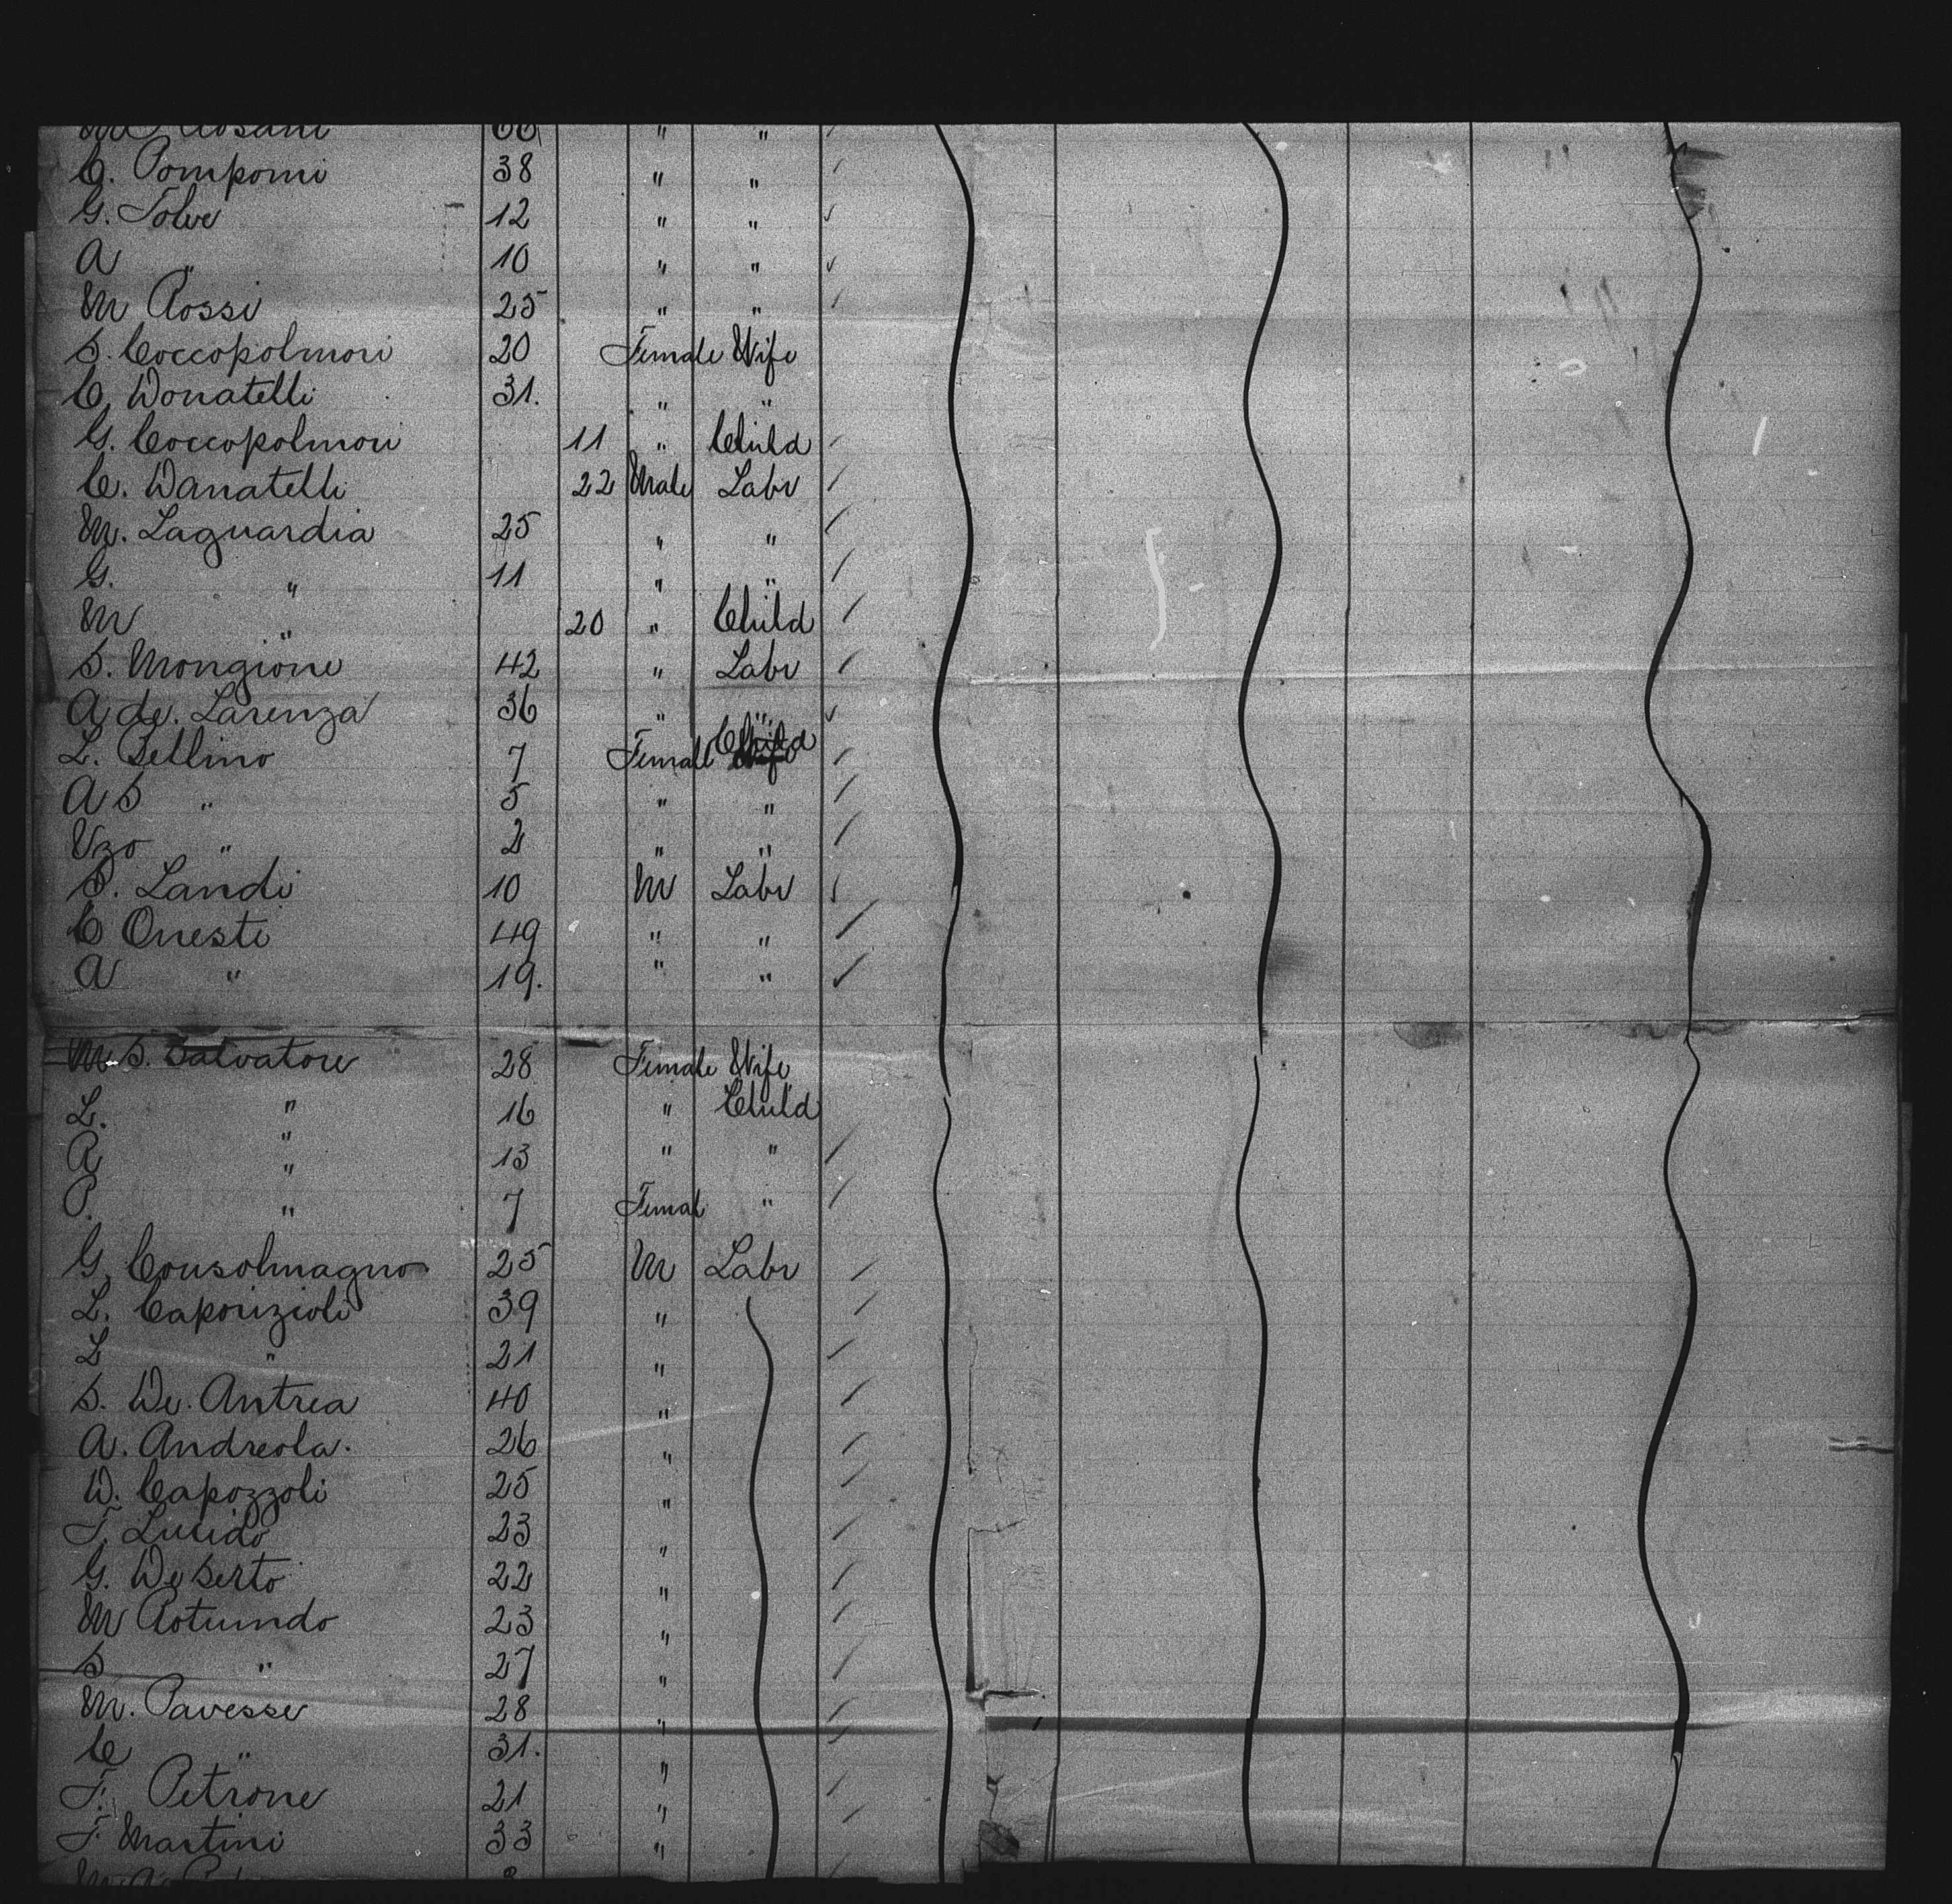 C. Pompomi 38 " "
G. Tolve 12 " "
A " 10 " "
M Rossi 25 " "
S. Coccopolmori 20 Female Wife
C. Donatelli 31. " "
G. Coccopolmori 11 " Child
C. Danatelli 22 Male Labr
M. Laguardia 25 " "
G. " 11 " "
M " 20 " Child
S. Mongione 42 " Labr
A de. Larenza 36 " "
L. Bellino 7 Female Child
A S " 5 " "
Vzo " 2 " "
S. Landi 10 M Labr
C Onesti 49 " "
A " 19. " "
M S. Salvatore 28 Female Wife
L. " 16 " Child
A " 13 " "
P. " 7 Femal "
G. Consolmagno 25 M Labr
L. Caporizioli 39 "
L " 21 "
S. De. Antrea 40 "
A. Andreola. 26 "
D. Capozzoli 25 "
F. Lucido 23 "
G. De Serto 22 "
M Rotundo 23 "
S " 27 "
M. Pavesse 28 "
C " 31. "
F. Petrone 21 "
F. Martini 33 "